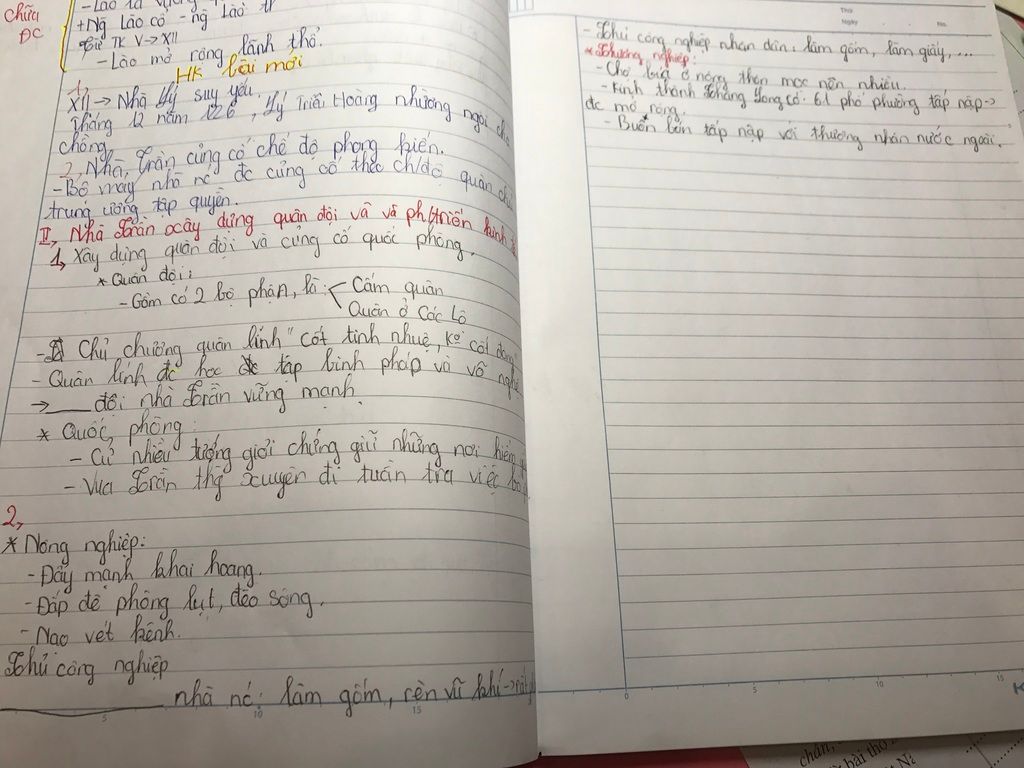 chữa
ĐC
+ Ng Lào cổ - ng Lào
Từ TK V → XII
- Lào mở rộng lãnh thổ.
HK lài mới
1,
XII → Nhà Lý suy yếu.
Tháng 12 năm 126, Lý Triều Hoàng nhường ngôi cho
chồng.
2, Nhà Trần củng cố chế độ phong kiến.
- Bộ máy nhà nc đc củng cố theo ch/độ quân chủ
trung ương tập quyền.
II, Nhà Trần xây dựng quân đội và và ph/triển kinh
1, Xây dựng quân đội và củng cố quốc phòng.
* Quân đội:
- Gồm có 2 bộ phận, là: Cấm quân
Quân ở các lộ
- Chủ chương quân lính "cốt tinh nhuệ, ko cốt đông"
- Quân lính đc học tập binh pháp và võ nghệ
→ đội nhà Trần vững mạnh.
* Quốc phòng:
- Cử nhiều tướng giỏi chứng giữ những nơi hiểm
- Vua Trần thg xuyên đi tuần tra việc
2,
* Nông nghiệp:
- Đẩy mạnh khai hoang.
- Đắp đê phòng lụt, đèo sông.
- Nạo vét kênh.
Thủ công nghiệp
nhà nc: làm gốm, rèn vũ khí →
Thứ
Ngày No.
- Thủ công nghiệp nhân dân: làm gốm, làm giấy,...
* Thương nghiệp:
- Chợ búa ở nông thôn mọc nên nhiều.
- Kinh thành Thăng Long có 61 phố phường tấp nập →
đc mở rộng.
- Buôn bán tấp nập với thương nhân nước ngoài.
5 10 15
0 5 10 15
chân,
bài thơ